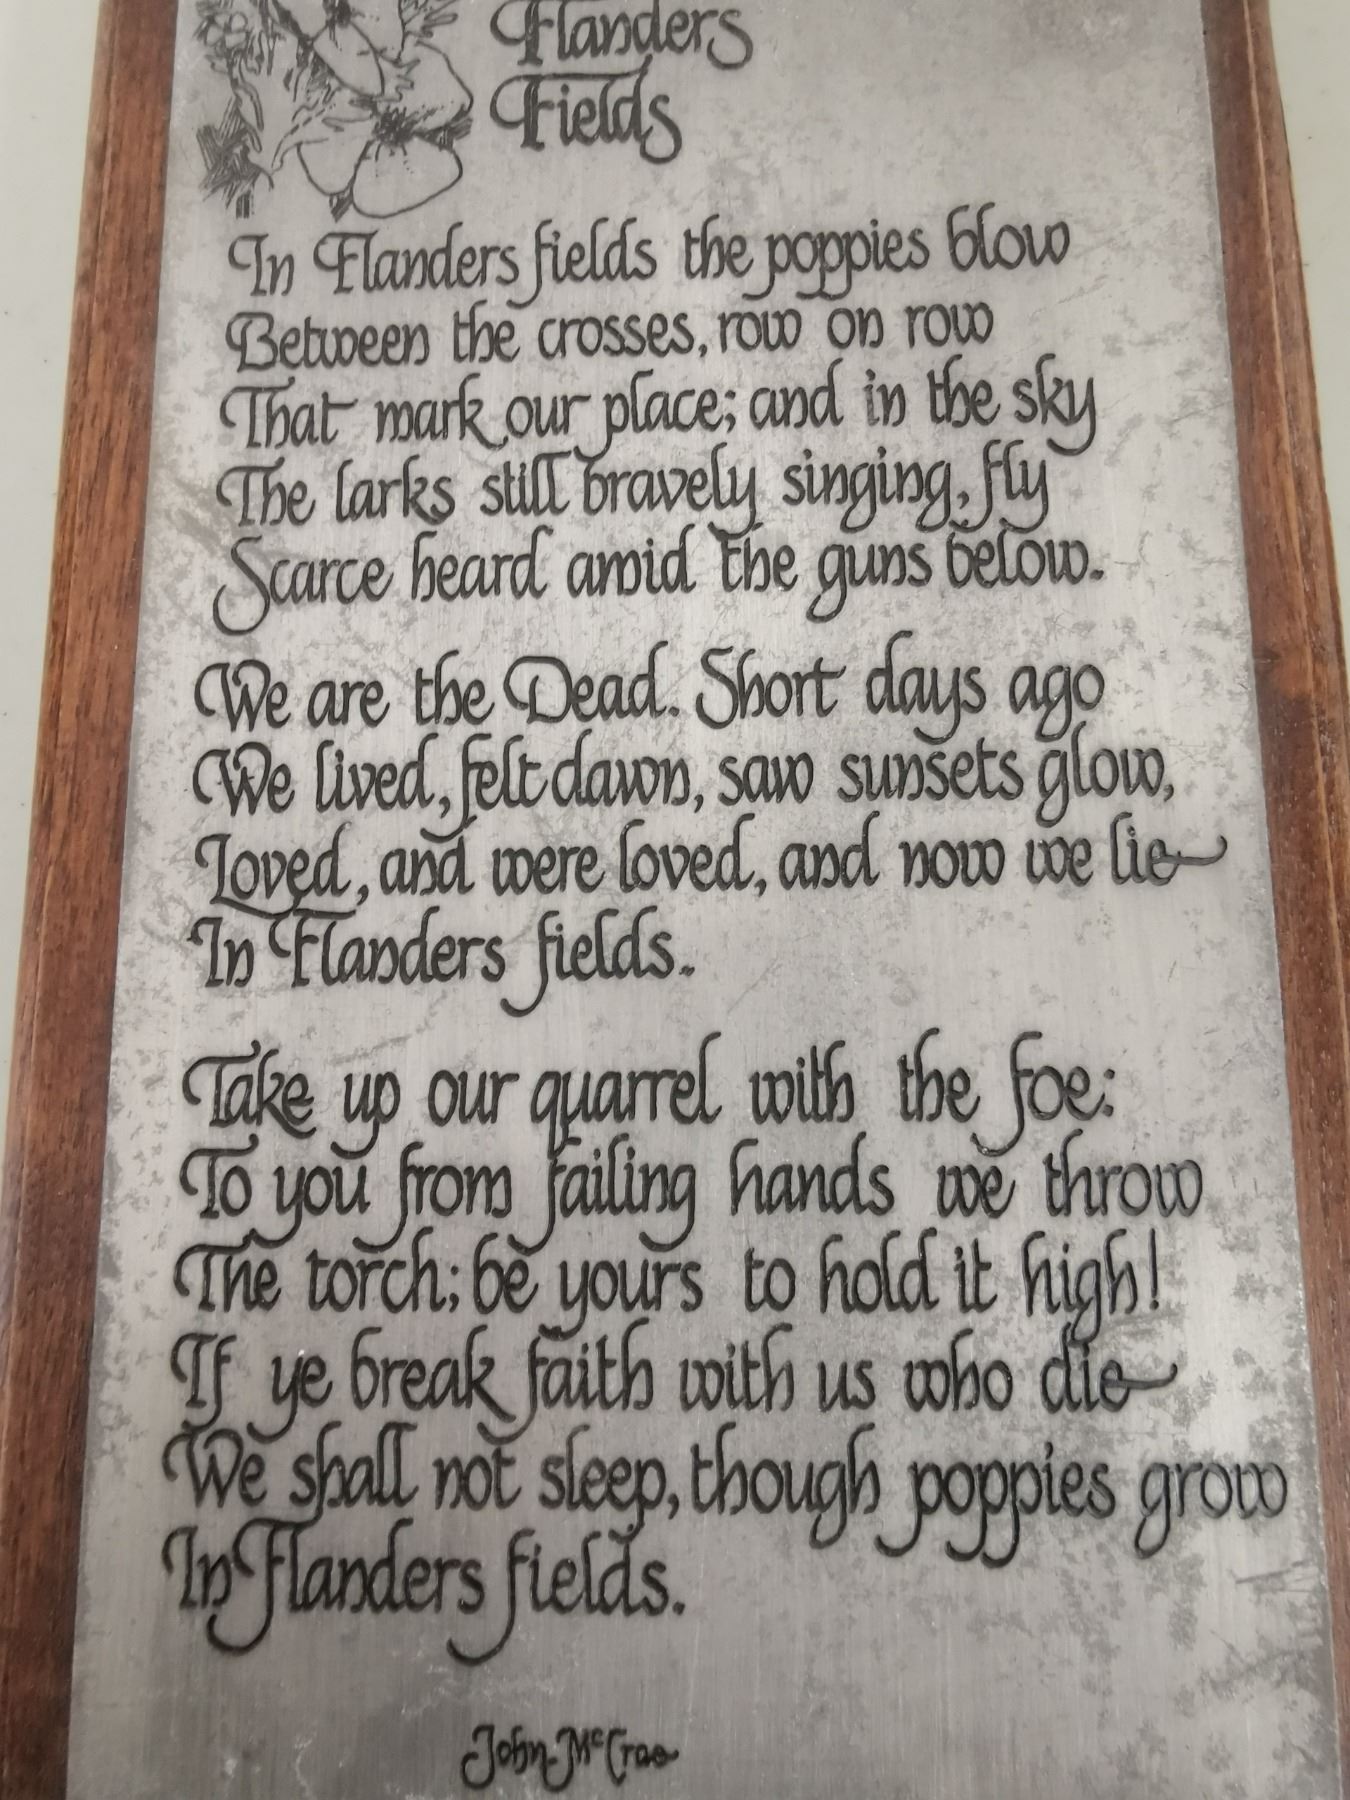 Flanders
Fields
In Flanders fields the poppies blow
Between the crosses, row on row
That mark our place; and in the sky
The larks still bravely singing, fly
Scarce heard amid the guns below.
We are the Dead. Short days ago
We lived, felt dawn, saw sunsets glow,
Loved, and were loved, and now we lie
In Flanders fields.
Take up our quarrel with the foe:
To you from failing hands we throw
The torch; be yours to hold it high!
If ye break faith with us who die
We shall not sleep, though poppies grow
In Flanders fields.
John McCrae